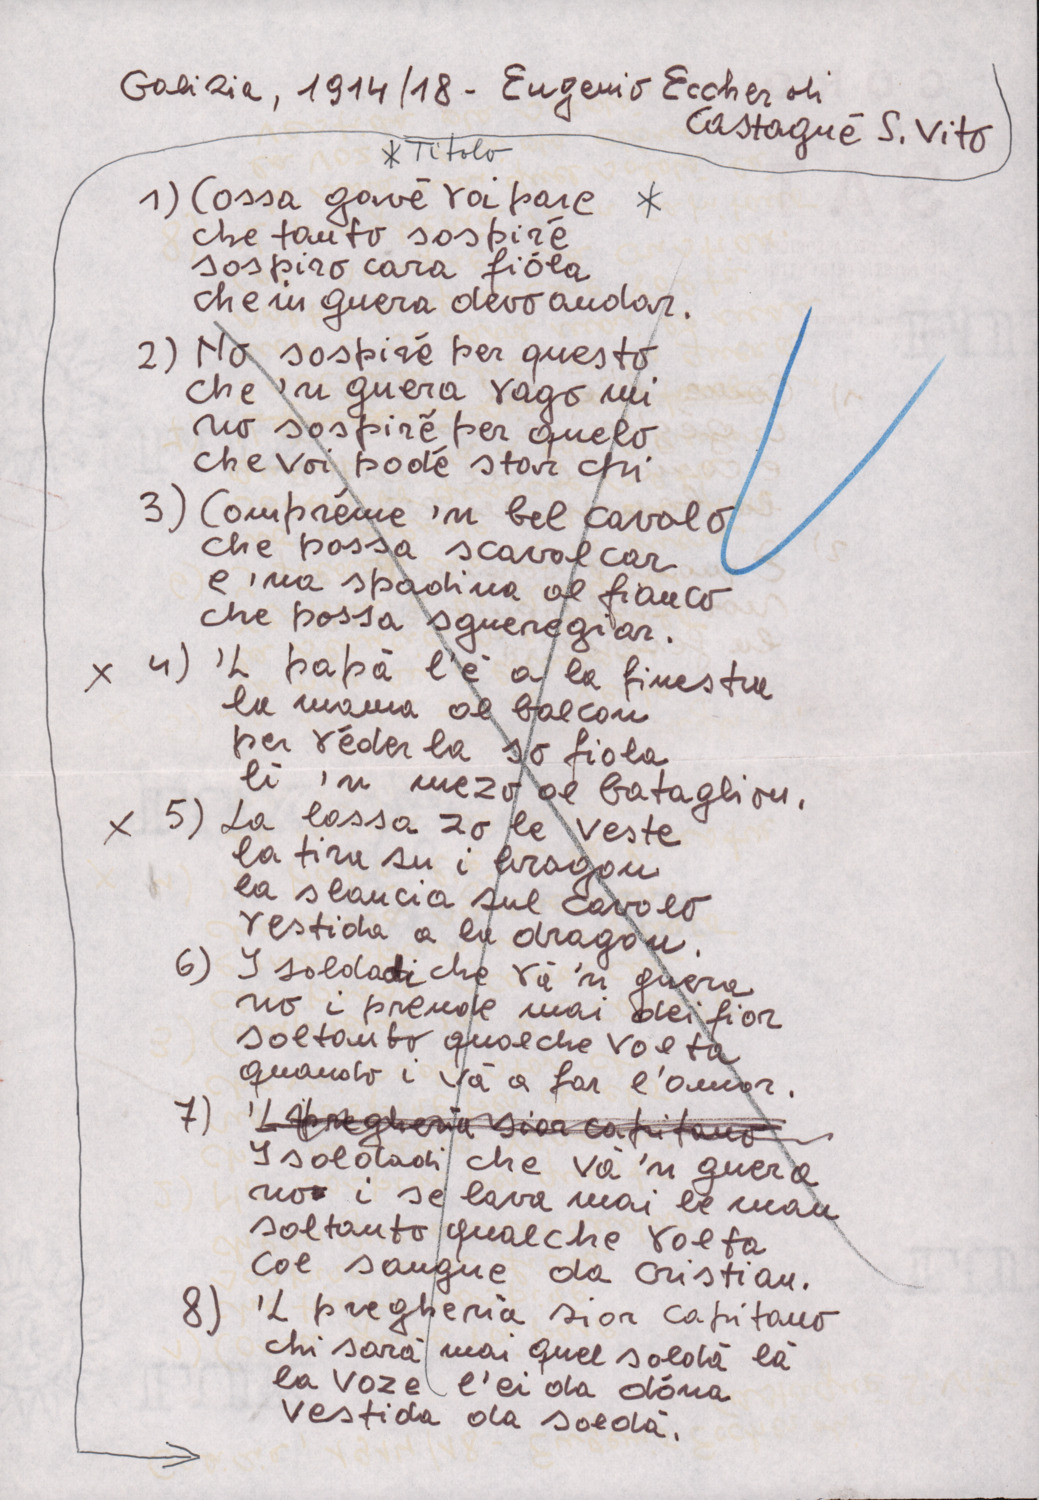 Galizia, 1914/18 - Eugenio Eccheroli
Castagué S. Vito
* Titolo
1) Cossa gavé voi pare *
che tanto sospiré
sospiro cara fióla
che in guera devo andar.
2) No sospiré per questo
che 'n guera vago mi
no sospiré per quelo
che voi podé star chi
3) Compréme 'n bel cavalo
che possa scavalcar
e 'na spadina al fianco
che possa squeregiar.
x 4) 'L papà l'è a la finestra
la mama al balcon
per véder la so fiola
lì 'n mezo al bataglion.
x 5) La lassa zo le veste
la tira su i bragon
la slancia sul cavalo
vestida a la dragon.
6) I soldadi che và 'n guera
no i prende mai dei fior
soltanto qualche volta
quando i và a far l'amor.
7) 'L pregheria sior capitano
I soldadi che và 'n guera
no i se lava mai le man
soltanto qualche volta
col sangue da cristian.
8) 'L pregheria sior capitano
chi sarà mai quel soldà là
la voze l'ei da dóna
vestida da soldà.